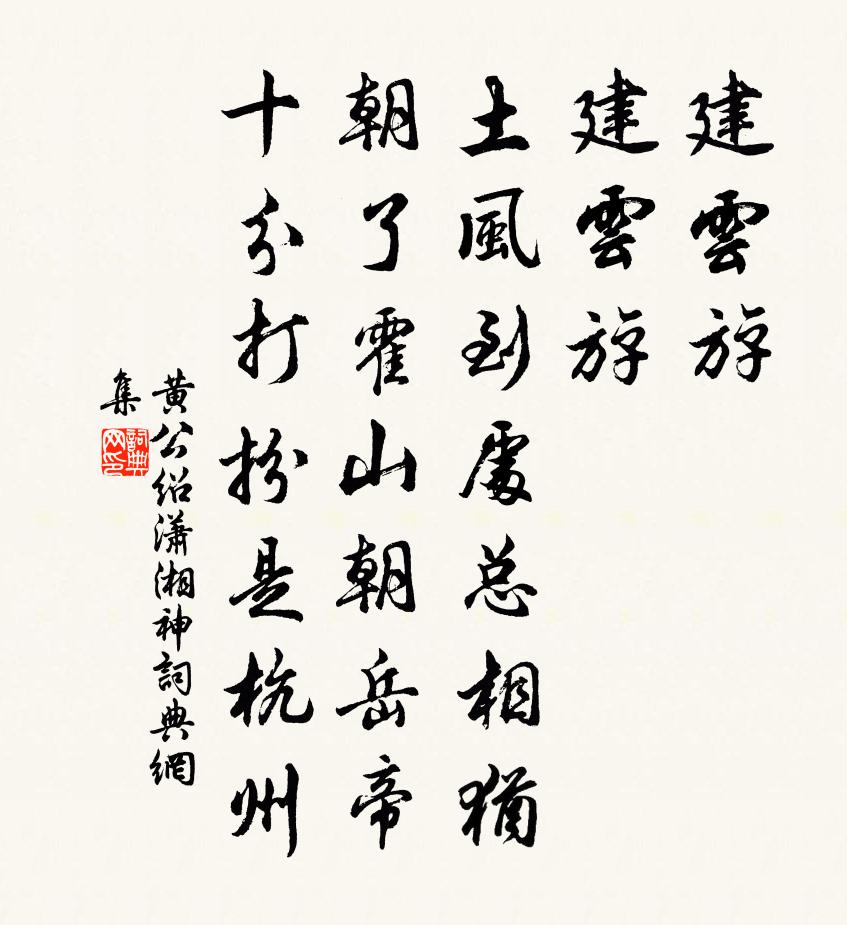 建雲斿
建雲斿
土風到處总相猶
朝了霍山朝岳帝
十分打扮是杭州
黄公绍瀟湘神詞典網
集
詞典
网印